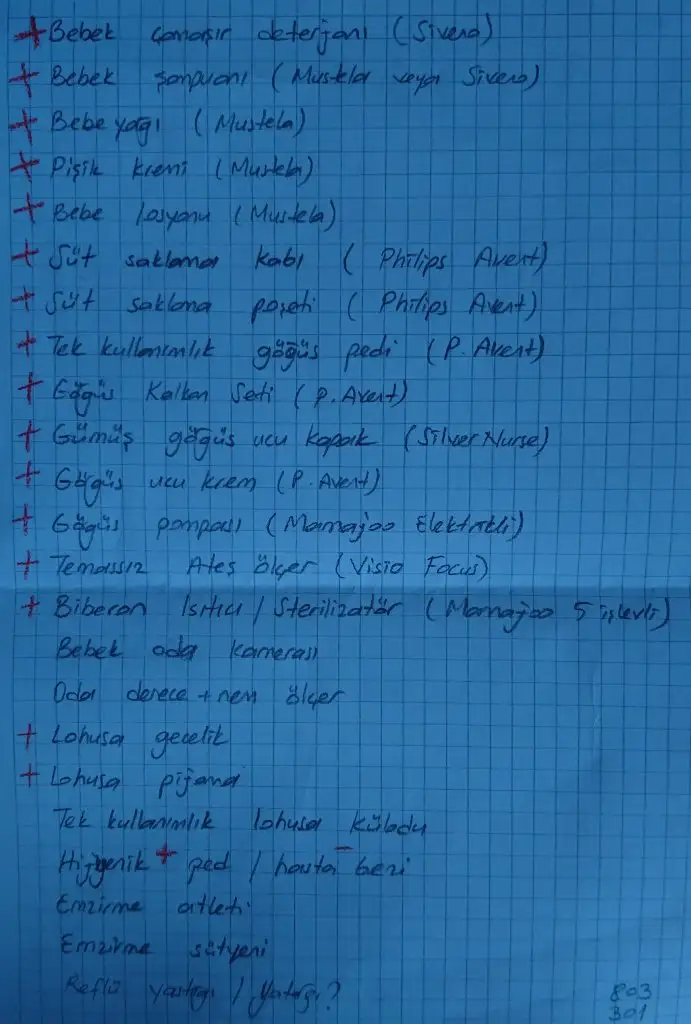 + Bebek çamaşır deterjanı (Sivera)
+ Bebek şampuanı (Mustela veya Sivera)
+ Bebe yağı (Mustela)
+ Pişik kremi (Mustela)
+ Bebe losyonu (Mustela)
+ Süt saklama kabı (Philips Avent)
+ Süt saklama poşeti (Philips Avent)
+ Tek kullanımlık göğüs pedi (P. Avent)
+ Göğüs Kalkan Seti (P. Avent)
+ Gümüş göğüs ucu kapak (Silver Nurse)
+ Göğüs ucu krem (P. Avent)
+ Göğüs pompası (Mamajoo Elektrikli)
+ Temassız Ateş ölçer (Visio Focus)
+ Biberon Isıtıcı / Sterilizatör (Mamajoo 5 işlevli)
Bebek oda kamerası
Oda derece + nem ölçer
+ Lohusa gecelik
+ Lohusa pijama
Tek kullanımlık lohusa küladu
Hijyenik + ped / hasta - bezi
Emzirme atleti
Emzirme sütyeni
Reflü yastığı / Yatağı?
803
301